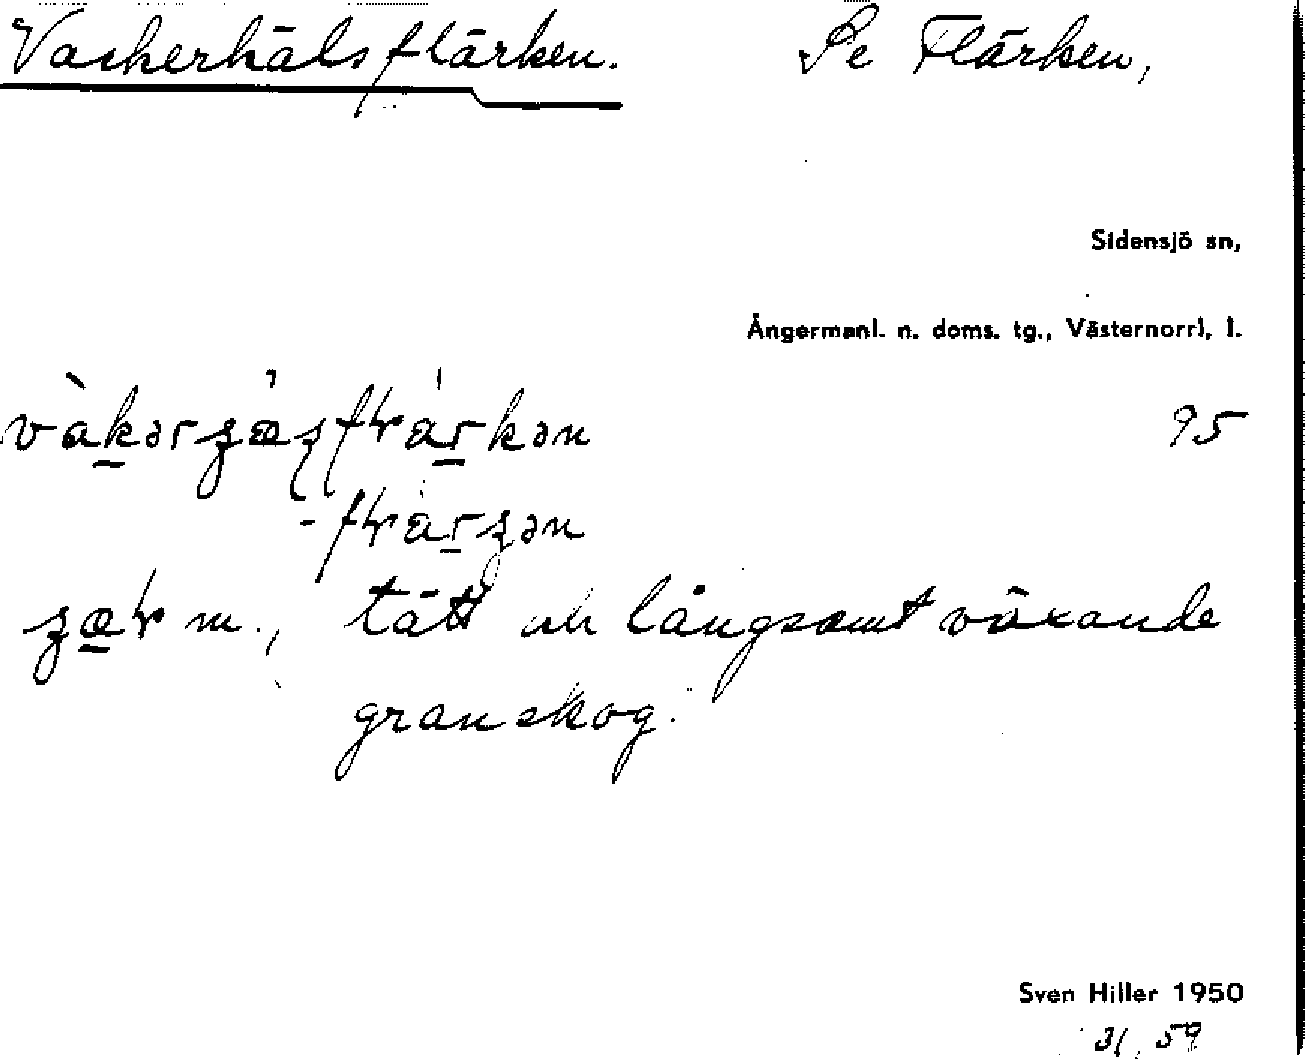 Vackerhälsflärken. Se Flärken,
Sidensjö sn,
Ångermanl. n. doms. tg., Västernorrl. l.
95
m., tätt och långsamt växande
granskog.
Sven Hiller 1950
31, 59